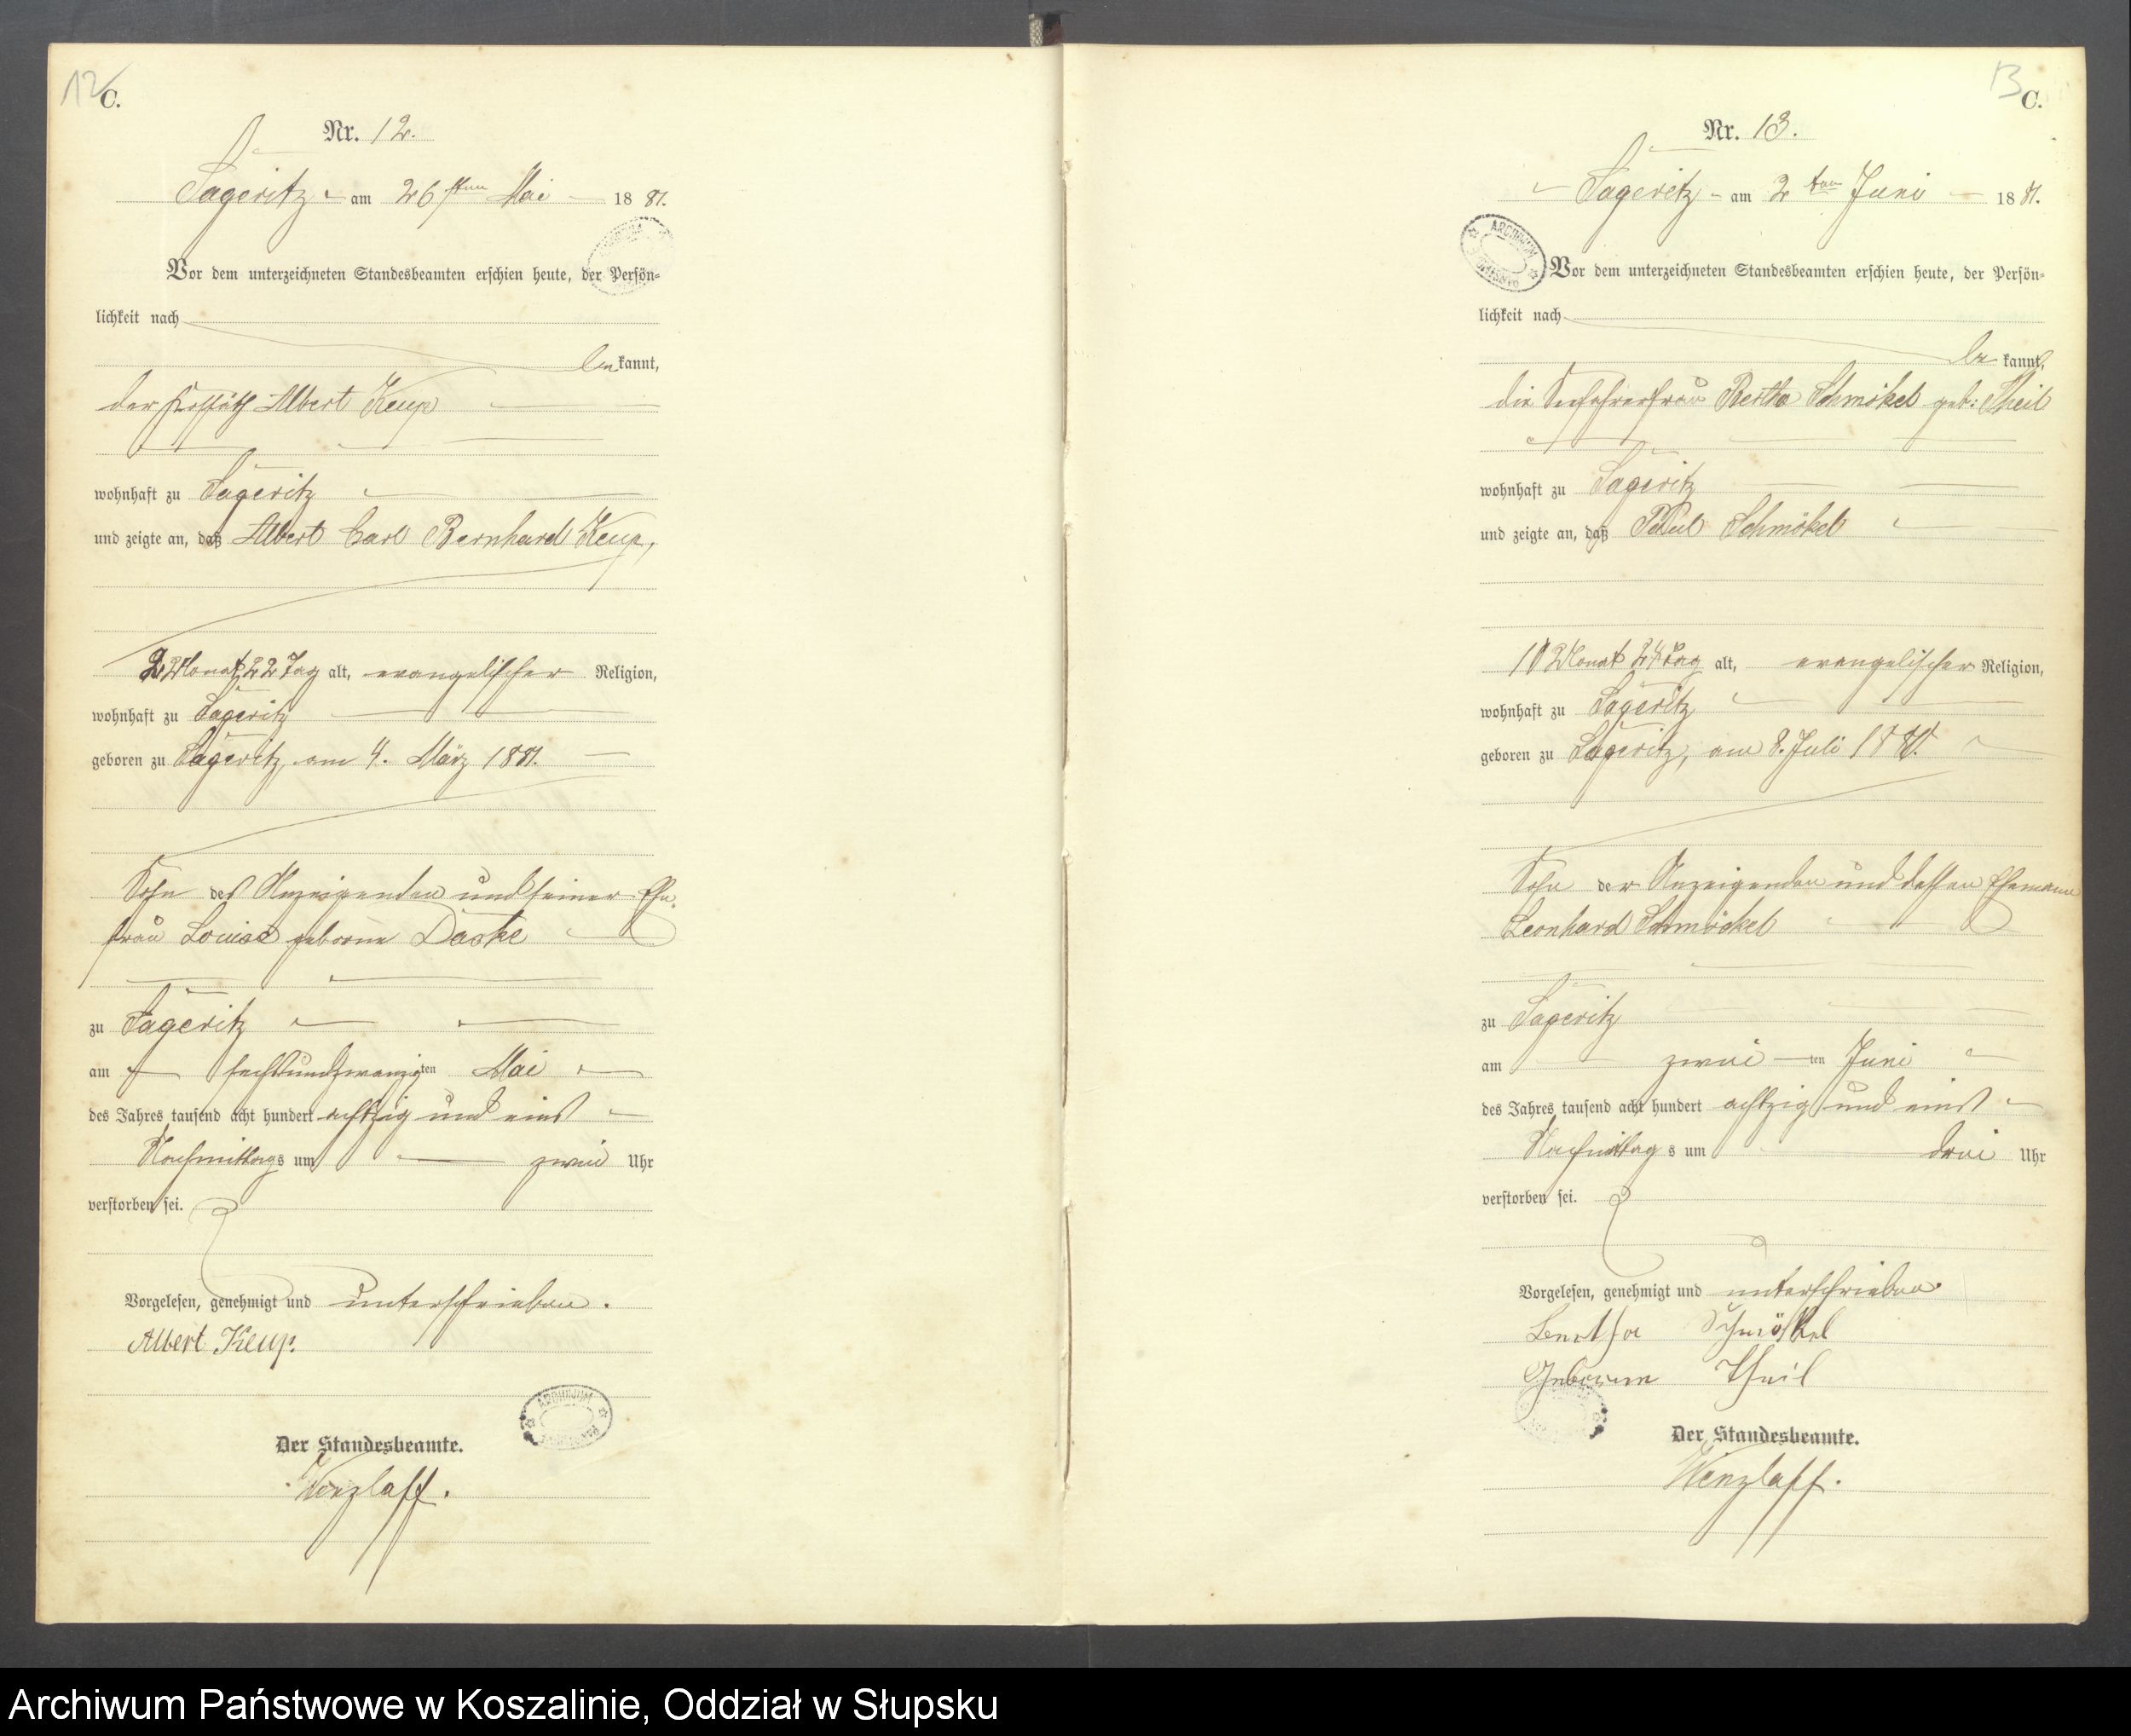 12
C.
Nr. 12.
Sageritz am 26sten Mai 1881.
Vor dem unterzeichneten Standesbeamten erschien heute, der Persön=
lichkeit nach
bekannt,
der Albert Keup
wohnhaft zu Sageritz
und zeigte an, daß Albert Carl Bernhard Keup,
2 Monat 22 Tag alt, evangelischer Religion,
wohnhaft zu Sageritz
geboren zu Sageritz, am 4. März 1881.
Sohn des Anzeigenden und seiner Ehe-
frau Louise geborne Daske
zu Sageritz
am sechsundzwanzigten Mai
des Jahres tausend acht hundert achtzig und eins
Nachmittags um zwei Uhr
verstorben sei.
Vorgelesen, genehmigt und unterschrieben.
Albert Keup.
ARCHIWUM
Der Standesbeamte.
Wenzlaff.
13
C.
Nr. 13.
Sageritz am 2ten Juni 1881.
ARCHIWUM
Vor dem unterzeichneten Standesbeamten erschien heute, der Persön=
lichkeit nach
bekannt,
die Bertha Schmökel geb: Theil
wohnhaft zu Sageritz
und zeigte an, daß Paul Schmökel
10 Monat 24 Tag alt, evangelischer Religion,
wohnhaft zu Sageritz
geboren zu Sageritz, am 8. Juli 1880.
Sohn der Anzeigenden und dessen Ehemann
Leonhard Schmökel
zu Sageritz
am zwei ten Juni
des Jahres tausend acht hundert achtzig und eins
Nachmittag s um drei Uhr
verstorben sei.
Vorgelesen, genehmigt und unterschrieben
Bertha Schmökel
Geborene Theil
Der Standesbeamte.
Wenzlaff.
Archiwum Państwowe w Koszalinie, Oddział w Słupsku